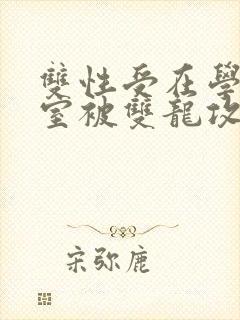 雙性受在學
室被雙龍攻
宋弥鹿